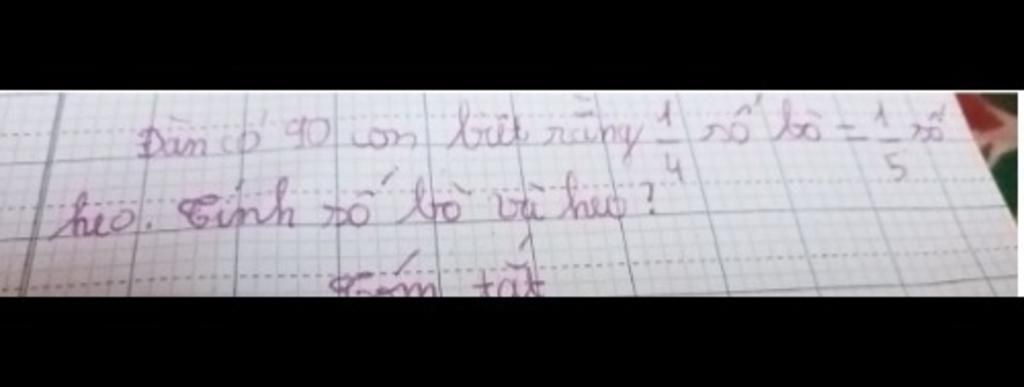 Đàn có 90 con biết rằng 1/4 số bò = 1/5 số
heo. Tính số bò và heo?
Tóm tắt